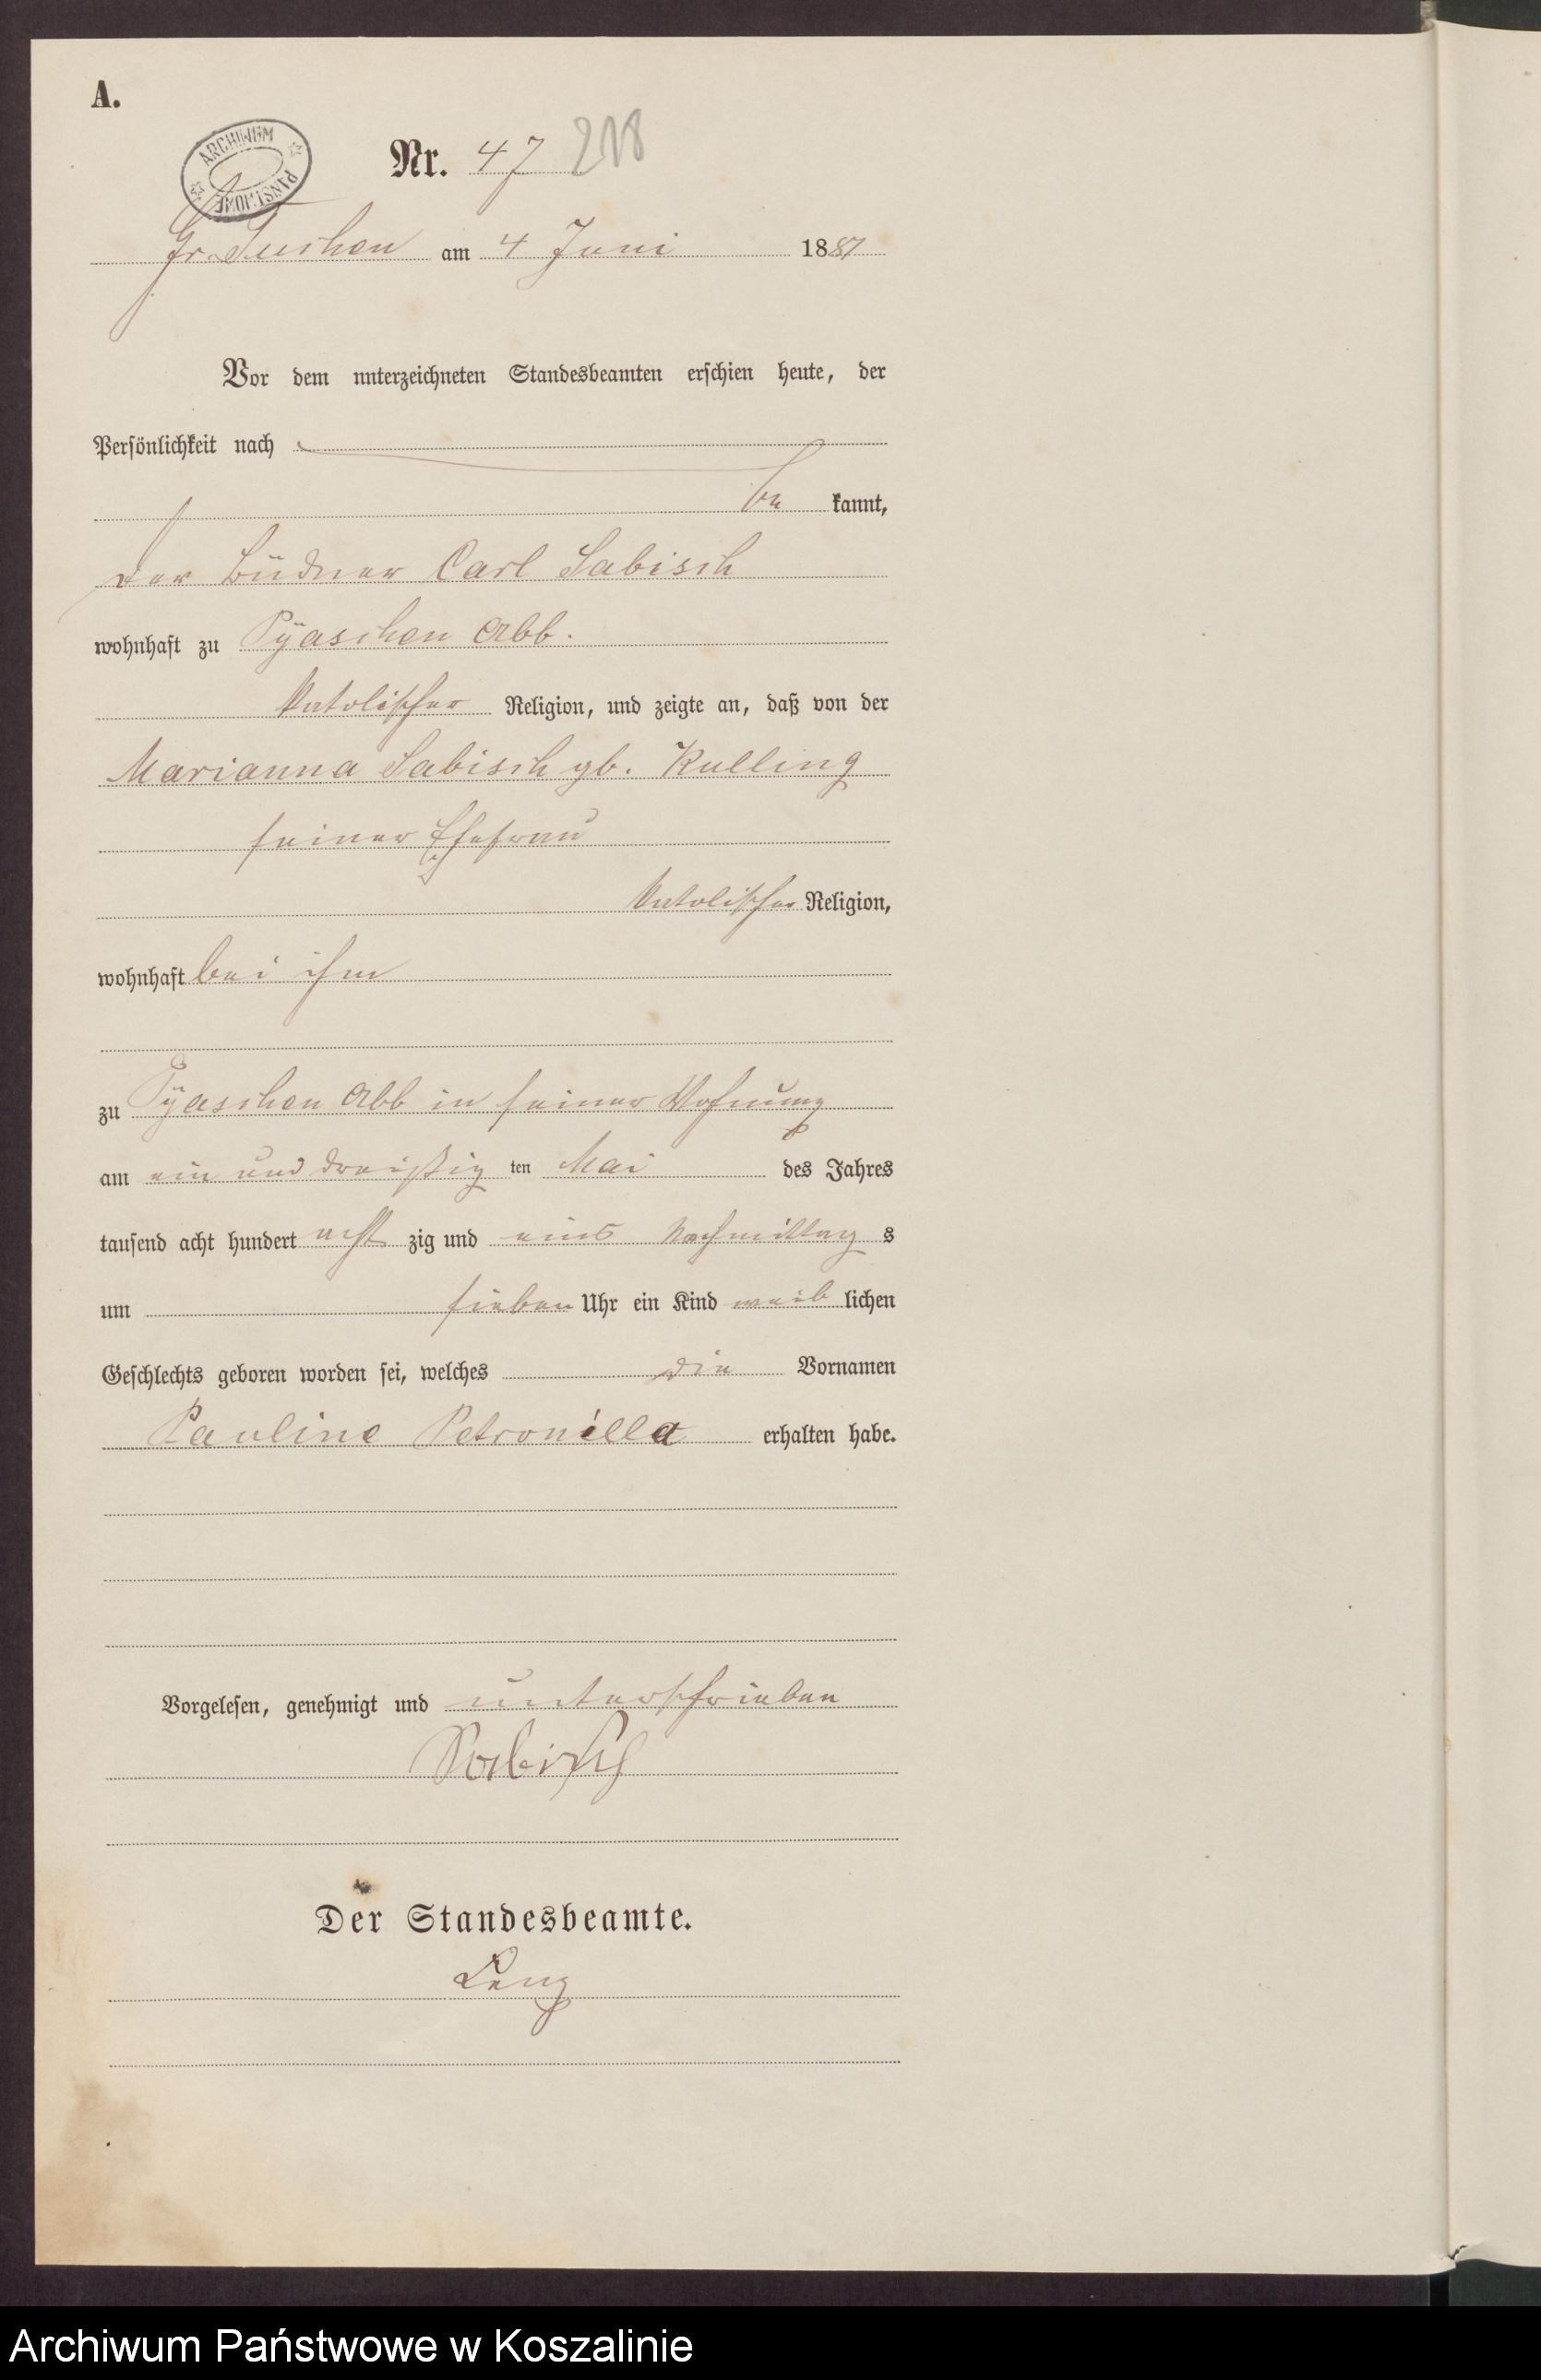 A.
ARCHIWUM PAŃSTWOWE
Nr. 47 218
Gr. Tuchen am 4 Juni 1881
Vor dem unterzeichneten Standesbeamten erschien heute, der
Persönlichkeit nach
be kannt,
der Büdner Carl Sabisch
wohnhaft zu Pÿaschen Abb.
katolischer Religion, und zeigte an, daß von der
Marianna Sabisch gb. Kulling
seiner Ehefrau
katolischer Religion,
wohnhaft bei ihm
zu Pÿaschen Abb in seiner Wohnung
am ein und dreißig ten Mai des Jahres
tausend acht hundert acht zig und eins Nachmittag s
um sieben Uhr ein Kind weib lichen
Geschlechts geboren worden sei, welches die Vornamen
Pauline Petronilla erhalten habe.
Vorgelesen, genehmigt und unterschrieben
Sabisch
Der Standesbeamte.
Lenz
Archiwum Państwowe w Koszalinie